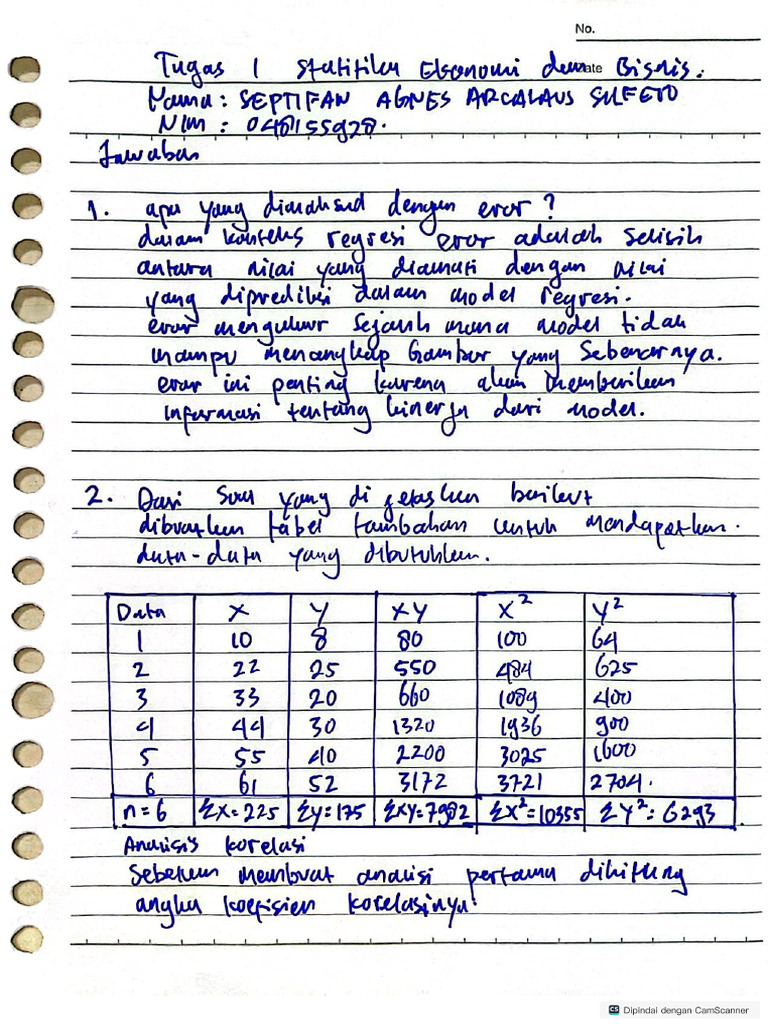 No.
Date
Tugas 1 Statitika Ekonomi dan Bisnis.
Nama : SEPTIFAN AGNES ARCALAUS SULFETO
NIM : 048155928.
Jawaban
1. apa yang dimaksud dengan eror ?
dalam konteks regresi eror adalah selisih
antara nilai yang diamati dengan nilai
yang diprediksi dalam model regresi.
eror mengukur sejauh mana model tidak
mampu menangkap Gambar yang Sebenarnya.
eror ini penting karena akan memberikan
informasi tentang kinerja dari model.
2. Dari Soal yang di berikut
dibuatkan tabel tambahan untuk mendapatkan.
data-data yang dibutuhkan.
Data X Y XY X² Y²
1 10 8 80 100 64
2 22 25 550 484 625
3 33 20 660 1089 400
4 44 30 1320 1936 900
5 55 40 2200 3025 1600
6 61 52 3172 3721 2704.
n=6 ΣX=225 ΣY=175 ΣXY=7982 ΣX²=10355 ΣY²=6293
Analisis korelasi
Sebelum membuat analisi pertama dihitung
angka koefisien korelasinya
CS Dipindai dengan CamScanner